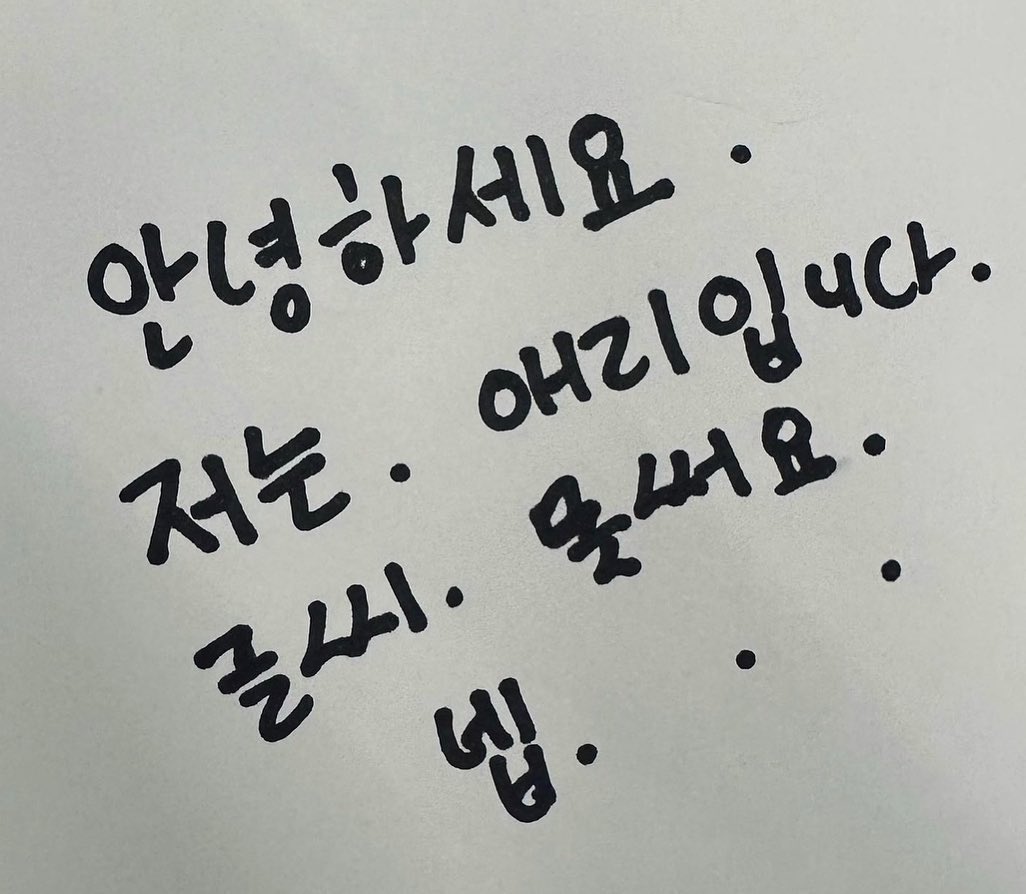 안녕하세요 .
저는 . 애리입니다.
글씨. 못써요.
넵 . . .